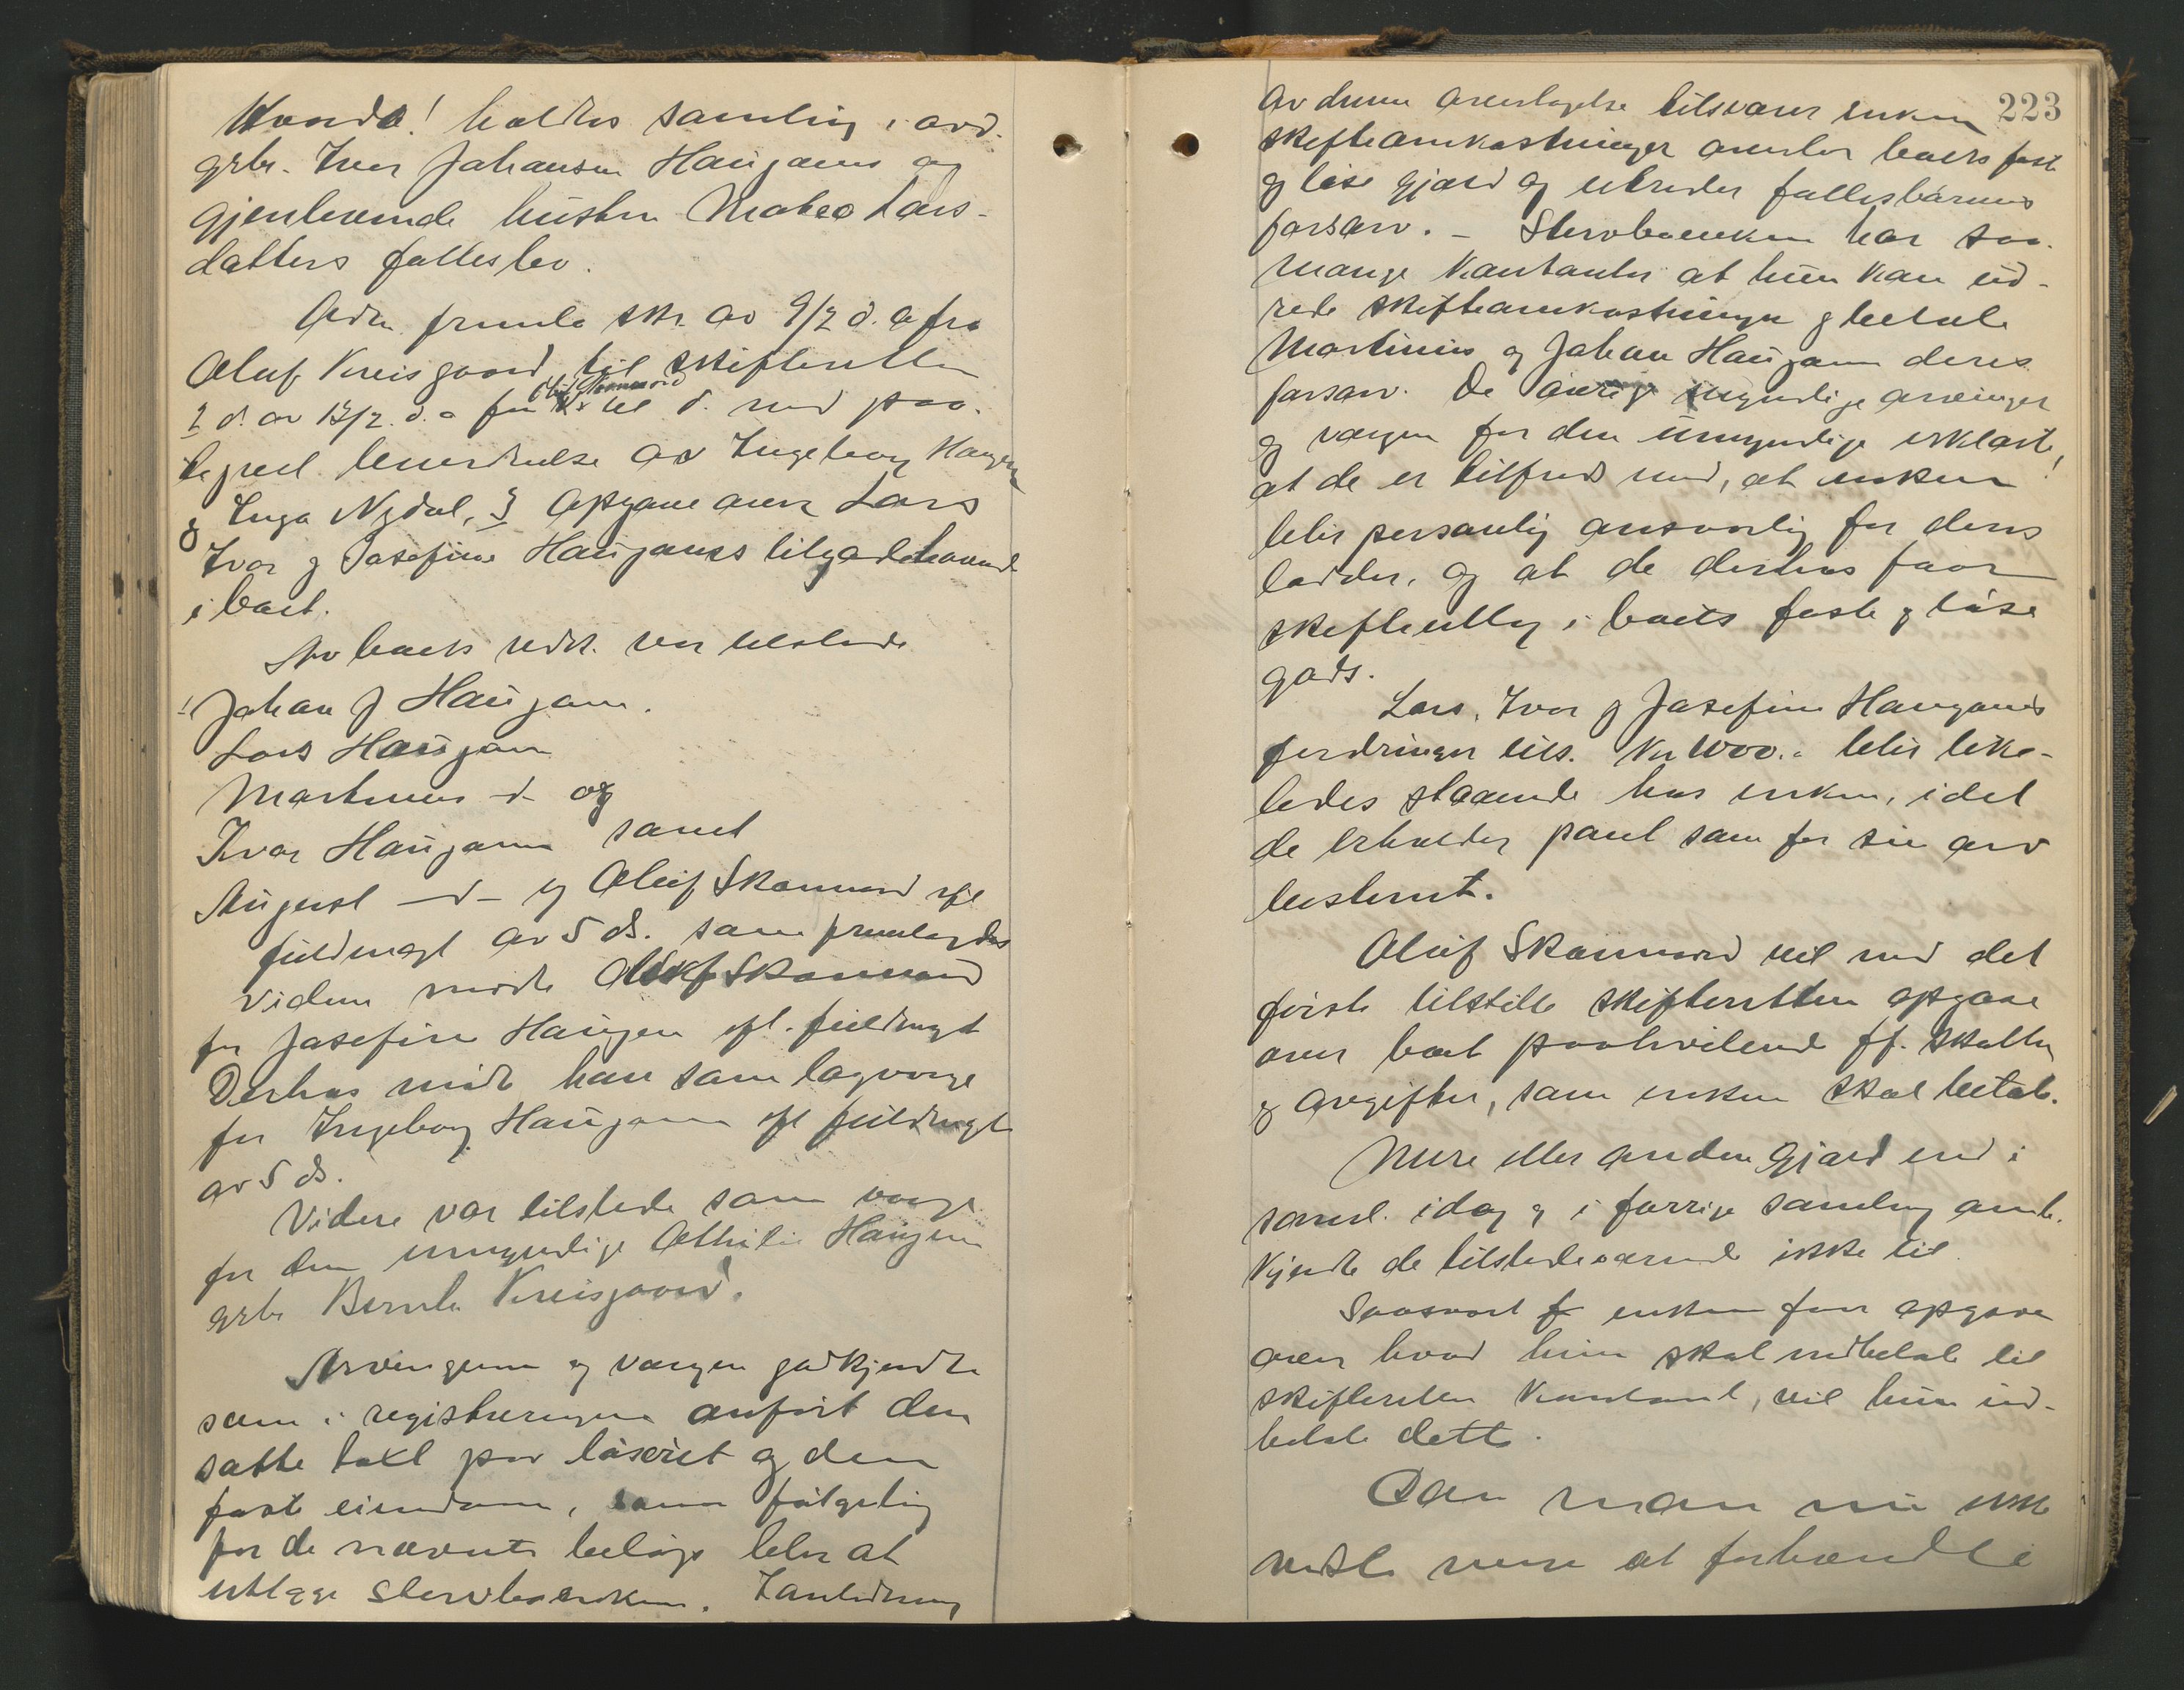 holdtes samling i avd.
grbr. Iver Johansen Haugans og
gjenlevende hustru Mateo Lars-
datters fællesbo.
Adm. freml. skr. av 9/2 d.a. fra
Oluf Kreisgaard til skifteretten
2 d. av 12/2 d.a. fra Oluf Skannord til d. med paa-
tegnet av Ingeborg Haugen
og Inga Nydal, 3 Opgave over Lars
Ivar og Josefine Haugans tilgodehavende
i boet.
Av boets vedk. var tilstede
1 Johan J Haugann.
Lars Haugan
Martinus -d- og
Ivar Haugann samt
August -d- og Oluf Skannord ifl
fuldmagt av 5 ds. som fremlagdes
videre mødte Oluf Skannord
for Josefine Haugen ifl. fuldmagt
Derhos mødte han som lagverge
for Ingeborg Haugann ifl fuldmagt
av 5 ds.
Videre var tilstede som verge
for den umyndige Othilie Haugen
grbr Bernt Kreisgaard.
Arvingerne og vergen godkjendte
som i registreringen anført den
satte taxt paa løsøret og den
faste eiendom, som følgelig
for de nævnte beløp blir at
utlægge stervboenken. I anledning
Av denne overtagelse tilsvarer enken 223
skifteomkostninger overtar boets faste
og løse gjæld og utreder fællesbarnens
farsarv. – Stervboenken har saa
mange kontanter at hun kan ud-
rede skifteomkostninger og betale
Martinus og Johan Haugann deres
farsarv. De øvrige myndige arvinger
og vergen for den umyndige erklærte,
at de er tilfreds med, at enken
blir personlig ansvarlig for deres
lodder, og at de derhos faar
skifteutlæg i boets faste og løse
gods.
Lars, Ivar og Josefine Haugans
fordringer tils. Kr 1000.- blir like-
ledes staaende hos enken, idet
de erholder pant som for sin arv
bestemt.
Oluf Skannord vil med det
første tilstille skifteretten opgave
over boet paahvilende ff. skatter
og avgifter, som enken skal betale.
Mere eller anden gjæld end i
saml. idag og i forrige samling omh.
kjendte de tilstedeværende ikke til.
Saasnart enken faar opgave
over hvad hun skal indbetale til
skifteretten kontant, vil hun ind-
betale dette.
Da man nu ikke
vidste mere at forhandle